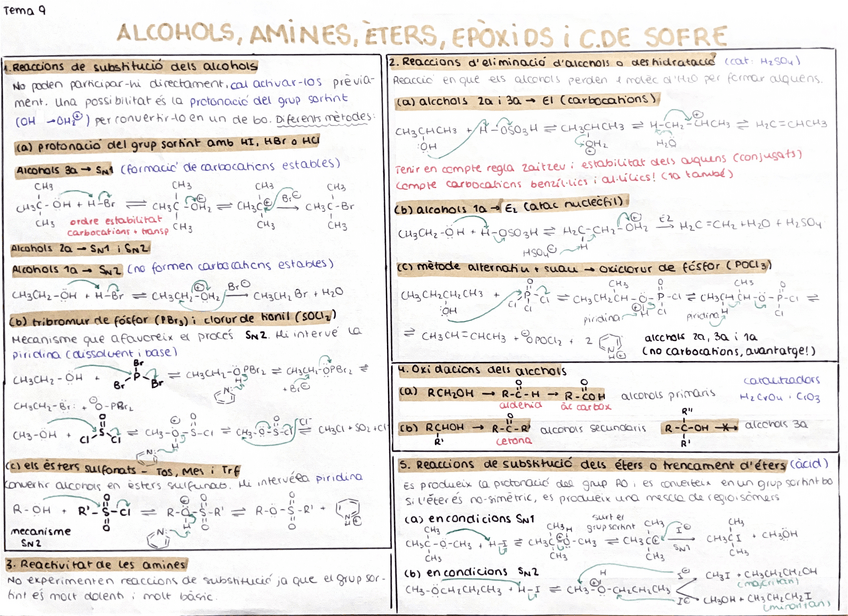 Tema 9
ALCOHOLS, AMINES, ÈTERS, EPÒXIDS i C.DE SOFRE
1. Reaccions de substitució dels alcohols
No poden participar-hi directament, cal activar-los prèvia-
ment. Una possibilitat és la protonació del grup sortint
(OH → OH₂⊕) per convertir-lo en un de bo. Diferents mètodes:
(a) protonació del grup sortint amb HI, HBr o HCl
Alcohols 3a → SN1 (formació de carbocations estables)
CH3 CH3 CH3 CH3
CH3-C-OH + H-Br ⇌ CH3-C-OH2 ⇌ CH3-C⊕ Br⊖ → CH3-C-Br
CH3 CH3 CH3 CH3
ordre estabilitat
carbocations + transp
Alcohols 2a → SN1 i SN2
Alcohols 1a → SN2 (no formen carbocations estables)
CH3CH2-OH + H-Br ⇌ CH3CH2-OH2 Br⊖ → CH3CH2Br + H2O
(b) tribromur de fósfor (PBr3) i clorur de tionil (SOCl2)
Mecanisme que afavoreix el procés SN2. Hi intervé la
piridina (dissolvent i base)
CH3CH2-OH + Br P Br Br ⇌ CH3CH2-OPBr2 ⇌ CH3CH2-OPBr2 ⇌
H + Br⊖
CH3CH2-Br: + ⊖O-PBr2
CH3-OH + Cl S Cl ⇌ CH3-O-S-Cl ⇌ CH3-O-S-Cl Cl⁻ ⇌ CH3Cl + SO2 + Cl⁻
(c) els èsters sulfonats - Tos, Mes i Trf
Convertir alcohols en èsters sulfonats. Hi intervé la piridina
R-OH + R'-S-Cl ⇌ R-O-S-R' ⇌ R-O-S-R' +
mecanisme
SN2
3. Reactivitat de les amines
No experimenten reaccions de substitució ja que el grup sor-
tint és molt dolent i molt bàsic.
2. Reaccions d'eliminació d'alcohols o deshidratació (cat: H2SO4)
Reacció en què els alcohols perden 1 molèc d'H2O per formar alquens.
(a) alcohols 2a i 3a → E1 (carbocations)
CH3CHCH3 + H-OSO3H ⇌ CH3CHCH3 ⇌ H-CH2-CHCH3 ⇌ H2C=CHCH3
OH OH2 H2O
Tenir en compte regla Zaitzev i estabilitat dels alquens (conjugats)
Compte carbocations benzíl·lics i al·lílics! (1a també)
(b) alcohols 1a → E2 (atac nucleòfil)
CH3CH2-OH + H-OSO3H ⇌ H2C-CH2-OH2 E2 → H2C=CH2 + H2O + H2SO4
HSO4⊖ H
(c) mètode alternatiu + suau → oxiclorur de fósfor (POCl3)
CH3CH2CHCH3 + Cl P Cl Cl ⇌ CH3CH2CH-O-P-Cl ⇌ CH3CH CH-O-P-Cl ⇌
OH piridina H Cl piridina H Cl
⇌ CH3CH=CHCH3 + ⊖OPOCl2 + 2 alcohols 2a, 3a i 1a
(no carbocations, avantatge!)
4. Oxidacions dels alcohols
(a) RCH2OH → R-C-H → R-COH alcohols primaris catalitzadors
aldehid àc carbox H2CrO4 · CrO3
(b) RCHOH → R-C-R' alcohols secundaris R-C-OH alcohols 3a
R' cetona R'' R'
5. Reaccions de substitució dels éters o trencament d'éters (àcid)
Es produeix la protonació del grup RO i es converteix en un grup sortint bo
Si l'éter és no-simètric, es produeix una mescla de regioisòmers
(a) en condicions SN1 surt el
grup sortint
CH3 CH3 CH3 CH3
CH3-C-O-CH3 + H-I ⇌ CH3-C-O-CH3 ⇌ CH3-C⊕ I⊖ SN1 → CH3-C-I + CH3OH
CH3 CH3 CH3 CH3
(b) en condicions SN2
CH3-OCH2CH2CH3 + H-I ⇌ CH3-O-CH2CH2CH3 I⊖ CH3I + CH3CH2CH2OH
(majoritari)
I⊖ CH3OH + CH3CH2CH2I
(minoritari)